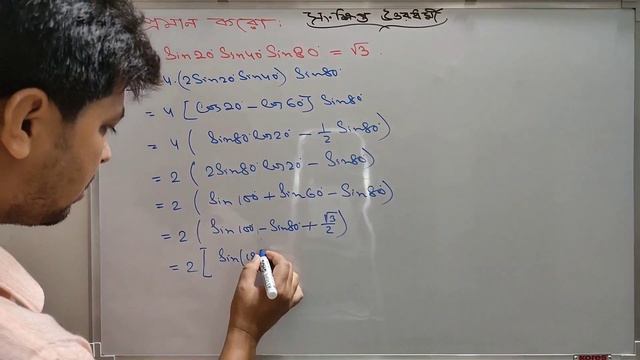 প্রমান করো:
Sin20° Sin40° Sin80° = √3.
4.(2Sin20° Sin40°) Sin80°
= 4 [Cos20° - Cos60°] Sin80°
= 4 ( Sin80° Cos20° - 1/2 Sin80° )
= 2 ( 2Sin80° Cos20° - Sin80° )
= 2 ( Sin100° + Sin60° - Sin80° )
= 2 ( Sin100° - Sin80° + √3/2 )
= 2 [ Sin(
kores